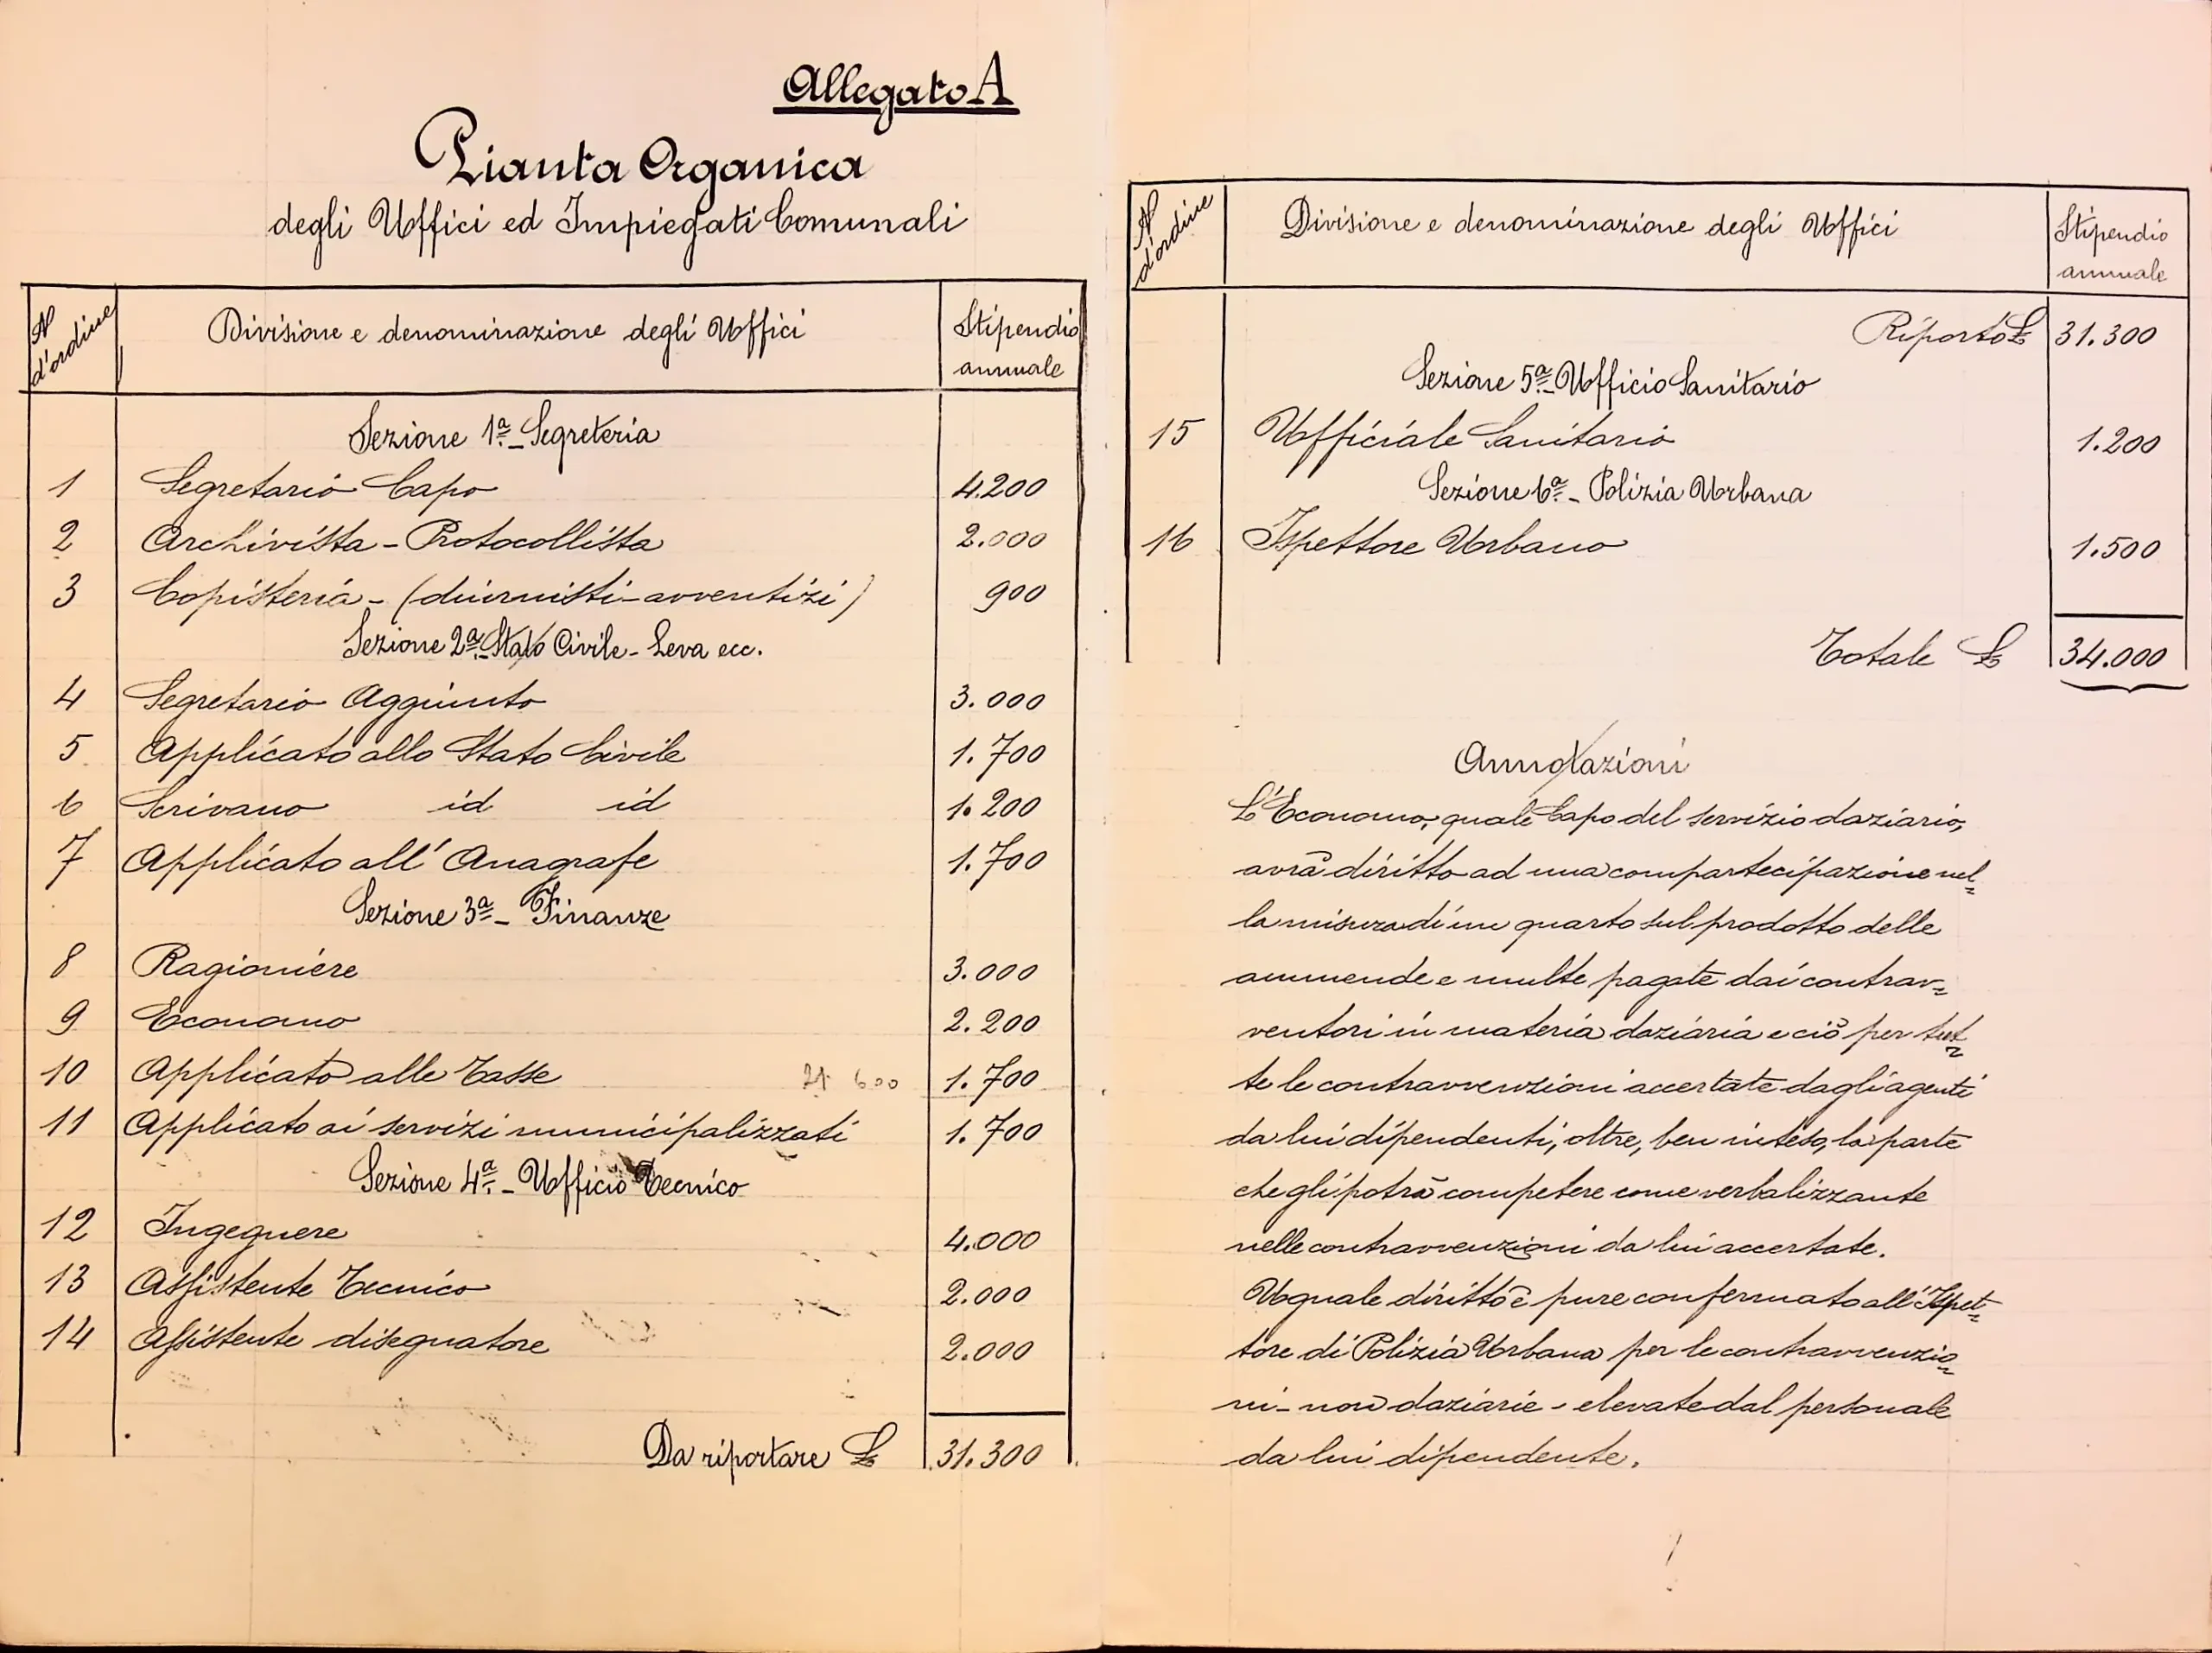 Allegato A
Pianta Organica
degli Uffici ed Impiegati Comunali
N d'ordine Divisione e denominazione degli Uffici Stipendio annuale
Sezione 1ª - Segreteria
1 Segretario Capo 4.200
2 Archivista - Protocollista 2.000
3 Copisteria - (diurnisti - avventizi) 900
Sezione 2ª - Stato Civile - Leva ecc.
4 Segretario Aggiunto 3.000
5 Applicato allo Stato Civile 1.700
6 Scrivano id id 1.200
7 Applicato all'Anagrafe 1.700
Sezione 3ª - Finanze
8 Ragioniere 3.000
9 Economo 2.200
10 Applicato alle Tasse 21 600 1.700
11 Applicato ai servizi municipalizzati 1.700
Sezione 4ª - Ufficio Tecnico
12 Ingegnere 4.000
13 Assistente Tecnico 2.000
14 Assistente disegnatore 2.000
Da riportare £ 31.300
N d'ordine Divisione e denominazione degli Uffici Stipendio annuale
Riporto £ 31.300
Sezione 5ª - Ufficio Sanitario
15 Ufficiale Sanitario 1.200
Sezione 6ª - Polizia Urbana
16 Ispettore Urbano 1.500
Totale £ 34.000
Annotazioni
L'Economo, quale Capo del servizio daziario,
avrà diritto ad una compartecipazione nel=
la misura di un quarto sul prodotto delle
ammende e multe pagate dai contrav=
ventori in materia daziaria e ciò per tut=
te le contravvenzioni accertate dagli agenti
da lui dipendenti, oltre, ben inteso, la parte
che gli potrà competere come verbalizzante
nelle contravvenzioni da lui accertate.
Uguale diritto è pure confermato all'Ispet=
tore di Polizia Urbana per le contravvenzio=
ni - non daziarie - elevate dal personale
da lui dipendente.